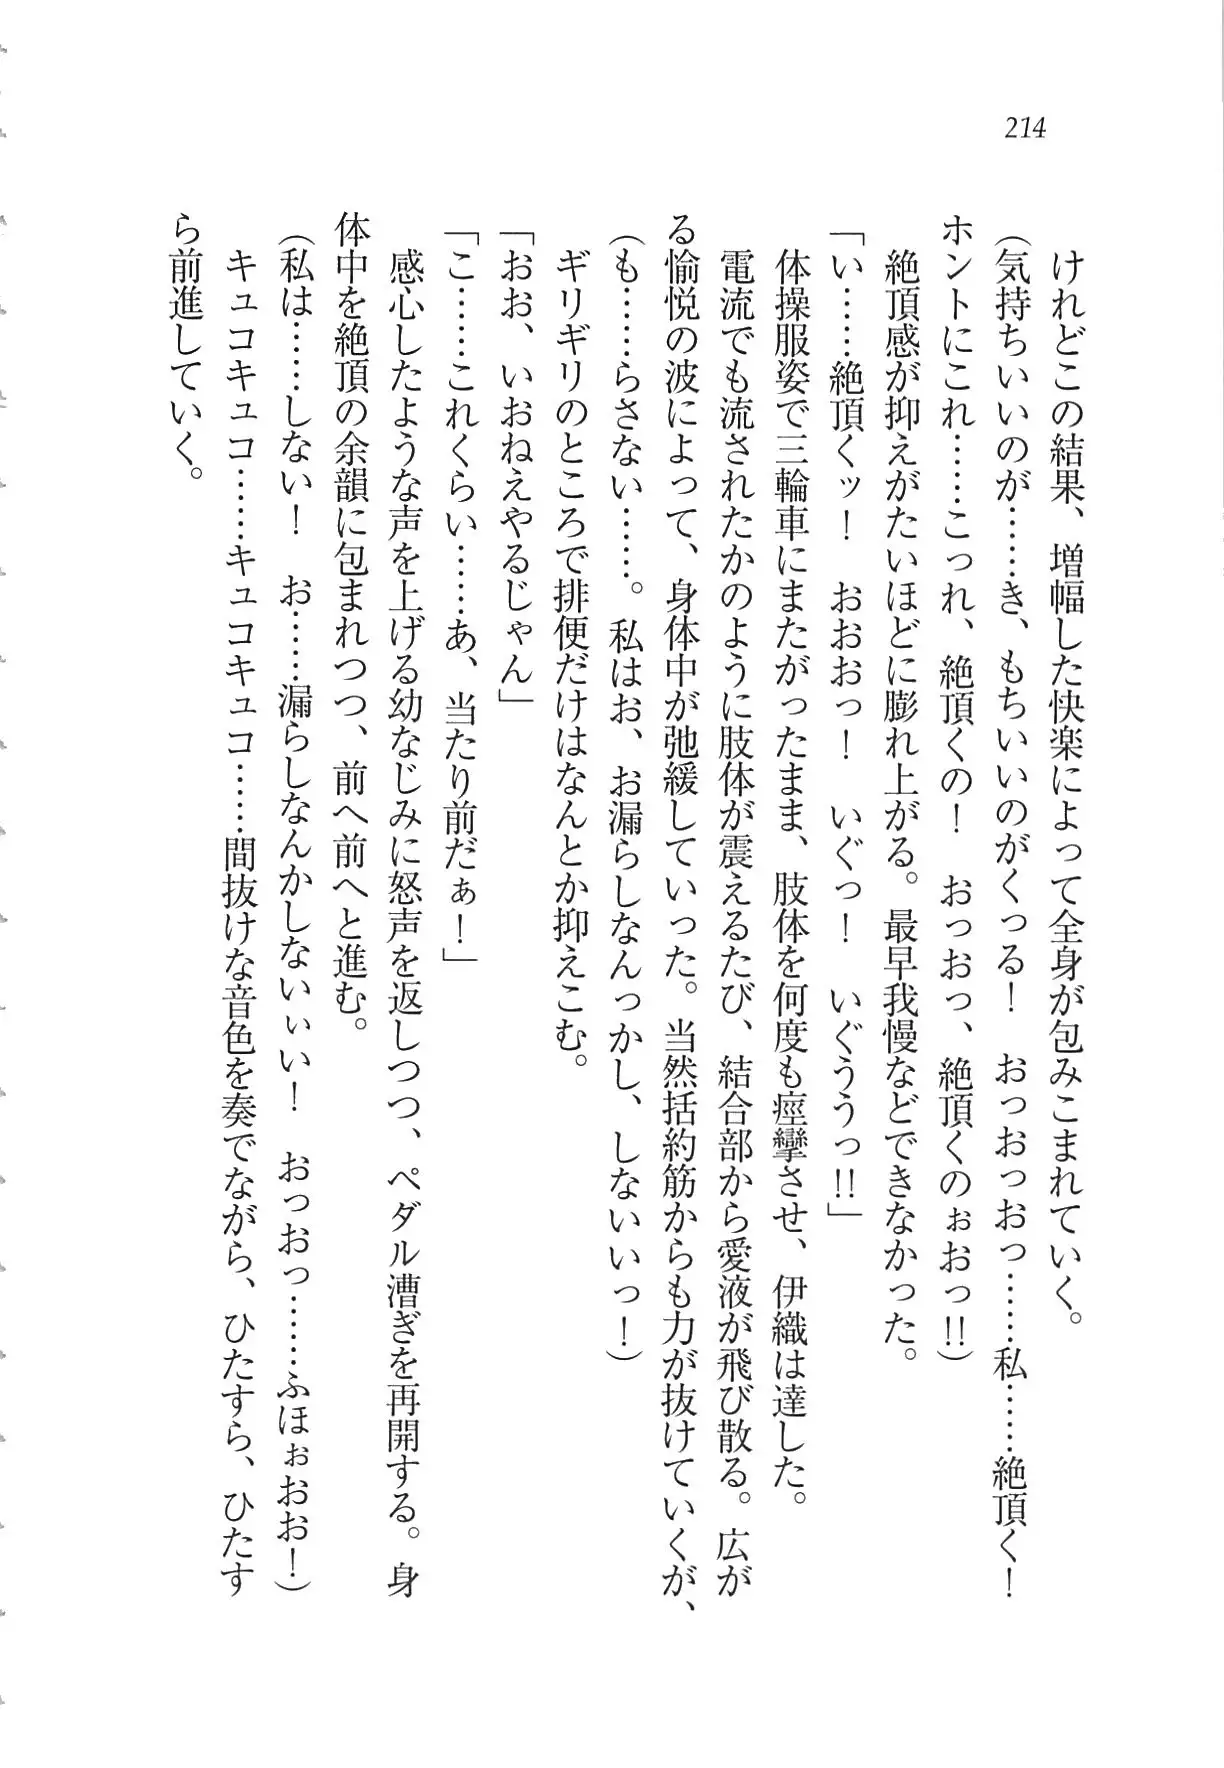 214
けれどこの結果、増幅した快楽によって全身が包みこまれていく。
（気持ちいいのが……き、もちいいのがくっる！　おっおっおっ……私……絶頂く！
ホントにこれ……こっれ、絶頂くの！　おっおっ、絶頂くのぉおっ!!）
絶頂感が抑えがたいほどに膨れ上がる。最早我慢などできなかった。
「い……絶頂くッ！　おおおっ！　いぐっ！　いぐううっ!!」
体操服姿で三輪車にまたがったまま、肢体を何度も痙攣させ、伊織は達した。
電流でも流されたかのように肢体が震えるたび、結合部から愛液が飛び散る。広が
る愉悦の波によって、身体中が弛緩していった。当然括約筋からも力が抜けていくが、
（も……らさない……。私はお、お漏らしなんっかし、しないいっ！）
ギリギリのところで排便だけはなんとか抑えこむ。
「おお、いおねえやるじゃん」
「こ……これくらい……あ、当たり前だぁ！」
感心したような声を上げる幼なじみに怒声を返しつつ、ペダル漕ぎを再開する。身
体中を絶頂の余韻に包まれつつ、前へ前へと進む。
（私は……しない！　お……漏らしなんかしないぃい！　おっおっ……ふほぉおお！）
キュコキュコ……キュコキュコ……間抜けな音色を奏でながら、ひたすら、ひたす
ら前進していく。